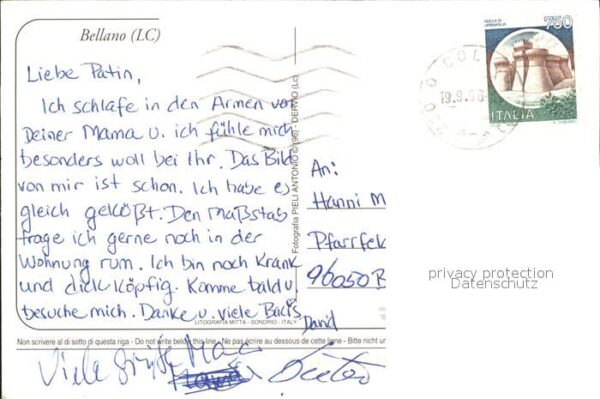 Bellano (LC)
ROCCA DI URBISAGLIA
750
ITALIA
19.9.96
Liebe Patin,
Ich schlafe in den Armen von
Deiner Mama u. ich fühle mich
besonders woll bei Ihr. Das Bild
von mir ist schon. Ich habe es
gleich gekößt. Den Maßstab
trage ich gerne noch in der
Wohnung rum. Ich bin noch Krank
und dickköpfig. Komme bald u.
besuche mich. Danke u. viele
David
An:
Hanni M
Pfarrfel
96050 B
Fotografia PIELI ANTONIO © (96) - DERVIO (Lc)
privacy protection
Datenschutz
LITOGRAFIA MITTA - SONDRIO - ITALY
Non scrivere al di sotto di questa riga - Do not write below the line - Ne pas écrire au dessous de cette ligne - Bitte nicht un
Viele Grüße